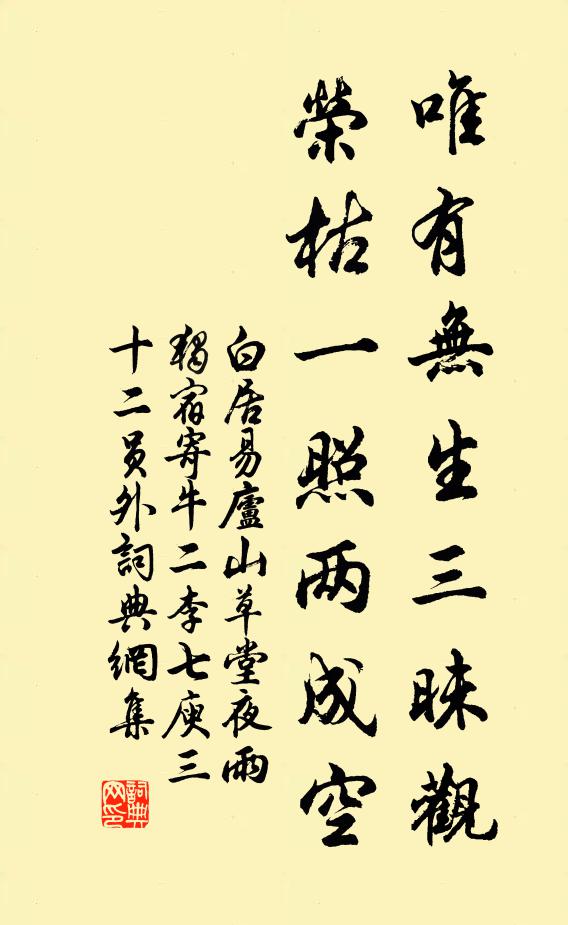 唯有無生三昧觀
榮枯一照两成空
白居易廬山草堂夜雨
獨宿寄牛二李七庾三
十二員外詞典網集
詞典
网印